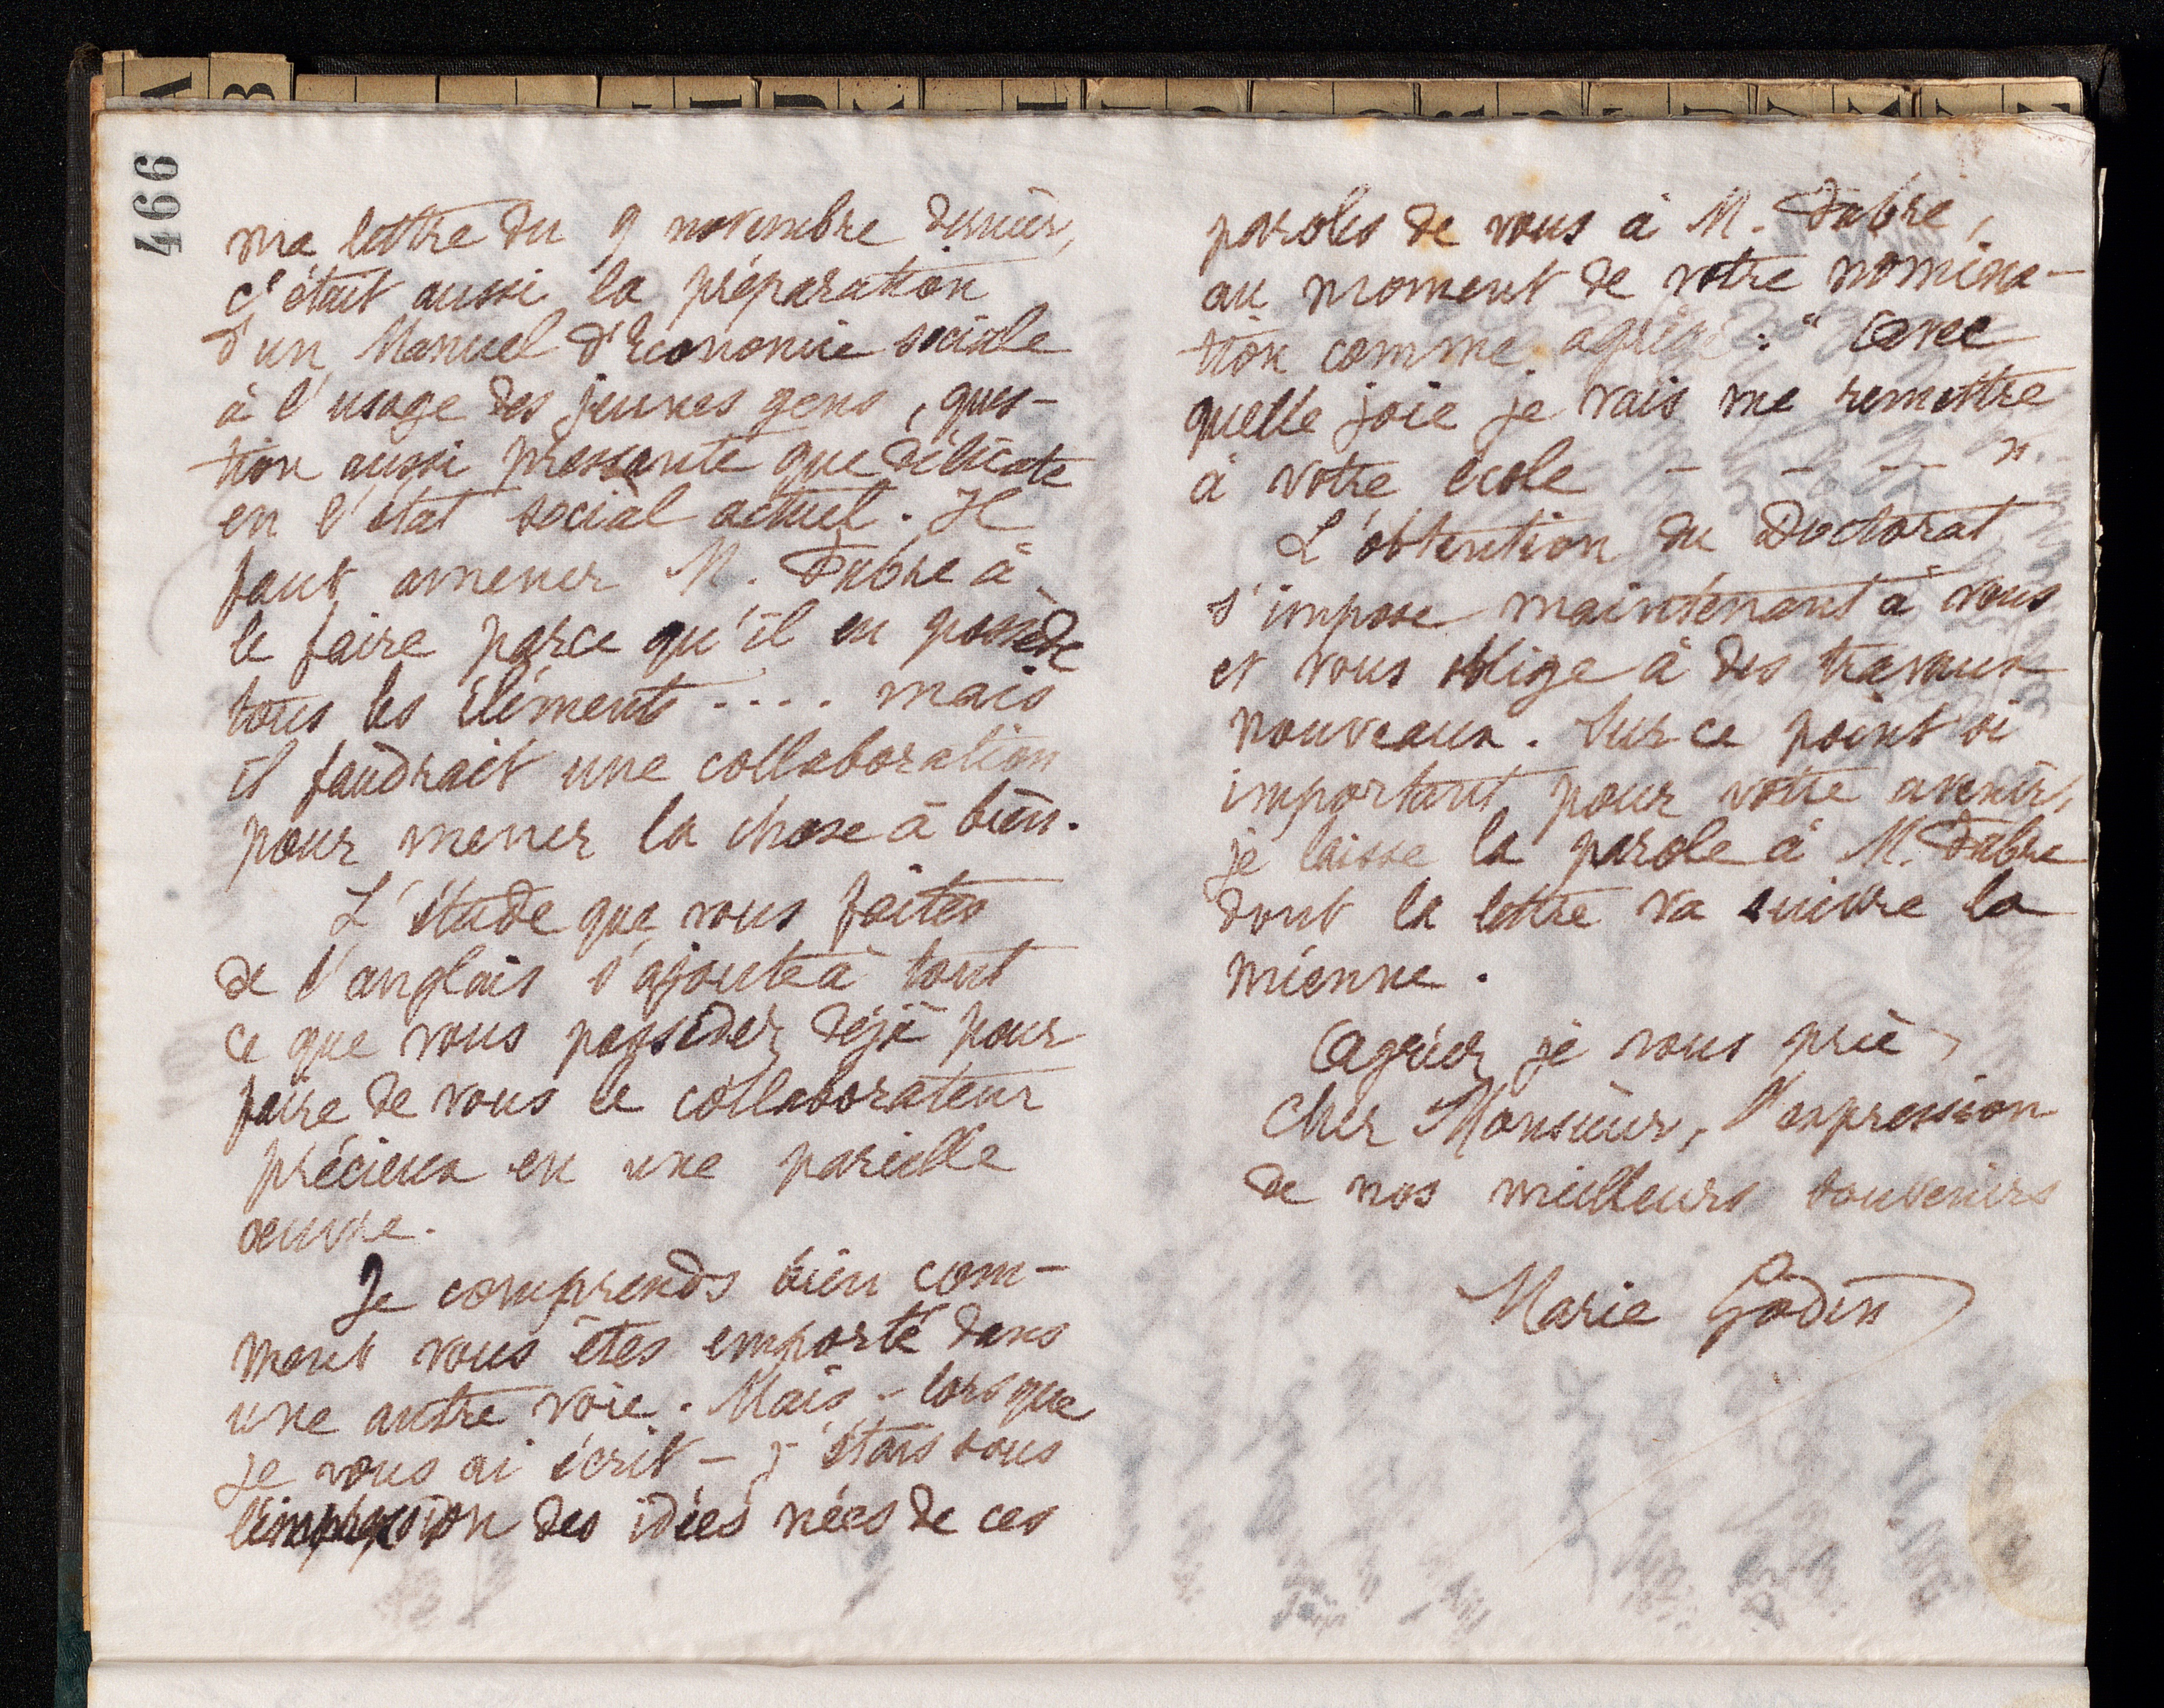 466
ma lettre du 9 novembre dernier,
c'était aussi la préparation
d'un Manuel d'Economie sociale
à l'usage des jeunes gens, ques-
tion aussi pressante que délicate
en l'état social actuel. Il
faut amener M. Fabre à
le faire parce qu'il en possède
tous les éléments .... mais
il faudrait une collaboration
pour mener la chose à bien.
L'étude que vous faites
de l'anglais s'ajoute à tout
ce que vous possédez déjà pour
faire de vous le collaborateur
précieux en une pareille
œuvre.
Je comprends bien com-
ment vous êtes emporté dans
une autre voie. Mais - lorsque
je vous ai écrit - j'étais sous
l'impression des idées nées de ces
paroles de vous à M. Fabre,
au moment de votre nomina-
tion comme agrégé : " Avec
quelle joie je vais me remettre
à votre école - - - - ".
L'obtention du Doctorat
s'impose maintenant à vous
et vous oblige à des travaux
nouveaux. Sur ce point si
important pour votre avenir,
je laisse la parole à M. Fabre
dont la lettre va suivre la
mienne.
Agréez je vous prie,
Cher Monsieur, l'expression
de nos meilleurs souvenirs
Marie Godin